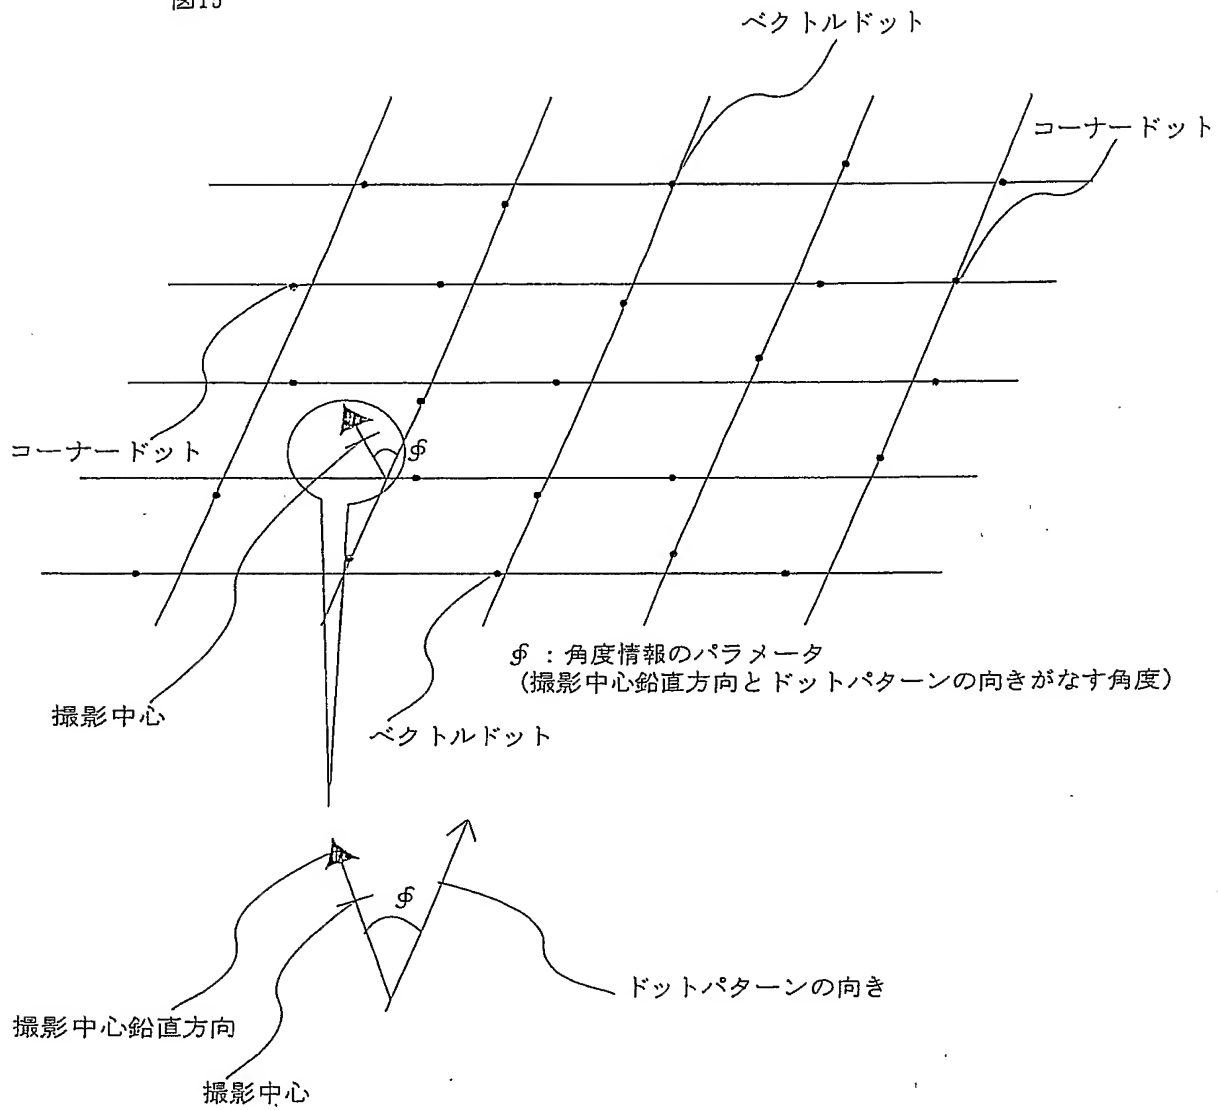 図15
ベクトルドット
コーナードット
コーナードット
∮
∮ : 角度情報のパラメータ
(撮影中心鉛直方向とドットパターンの向きがなす角度)
撮影中心
ベクトルドット
∮
ドットパターンの向き
撮影中心鉛直方向
撮影中心